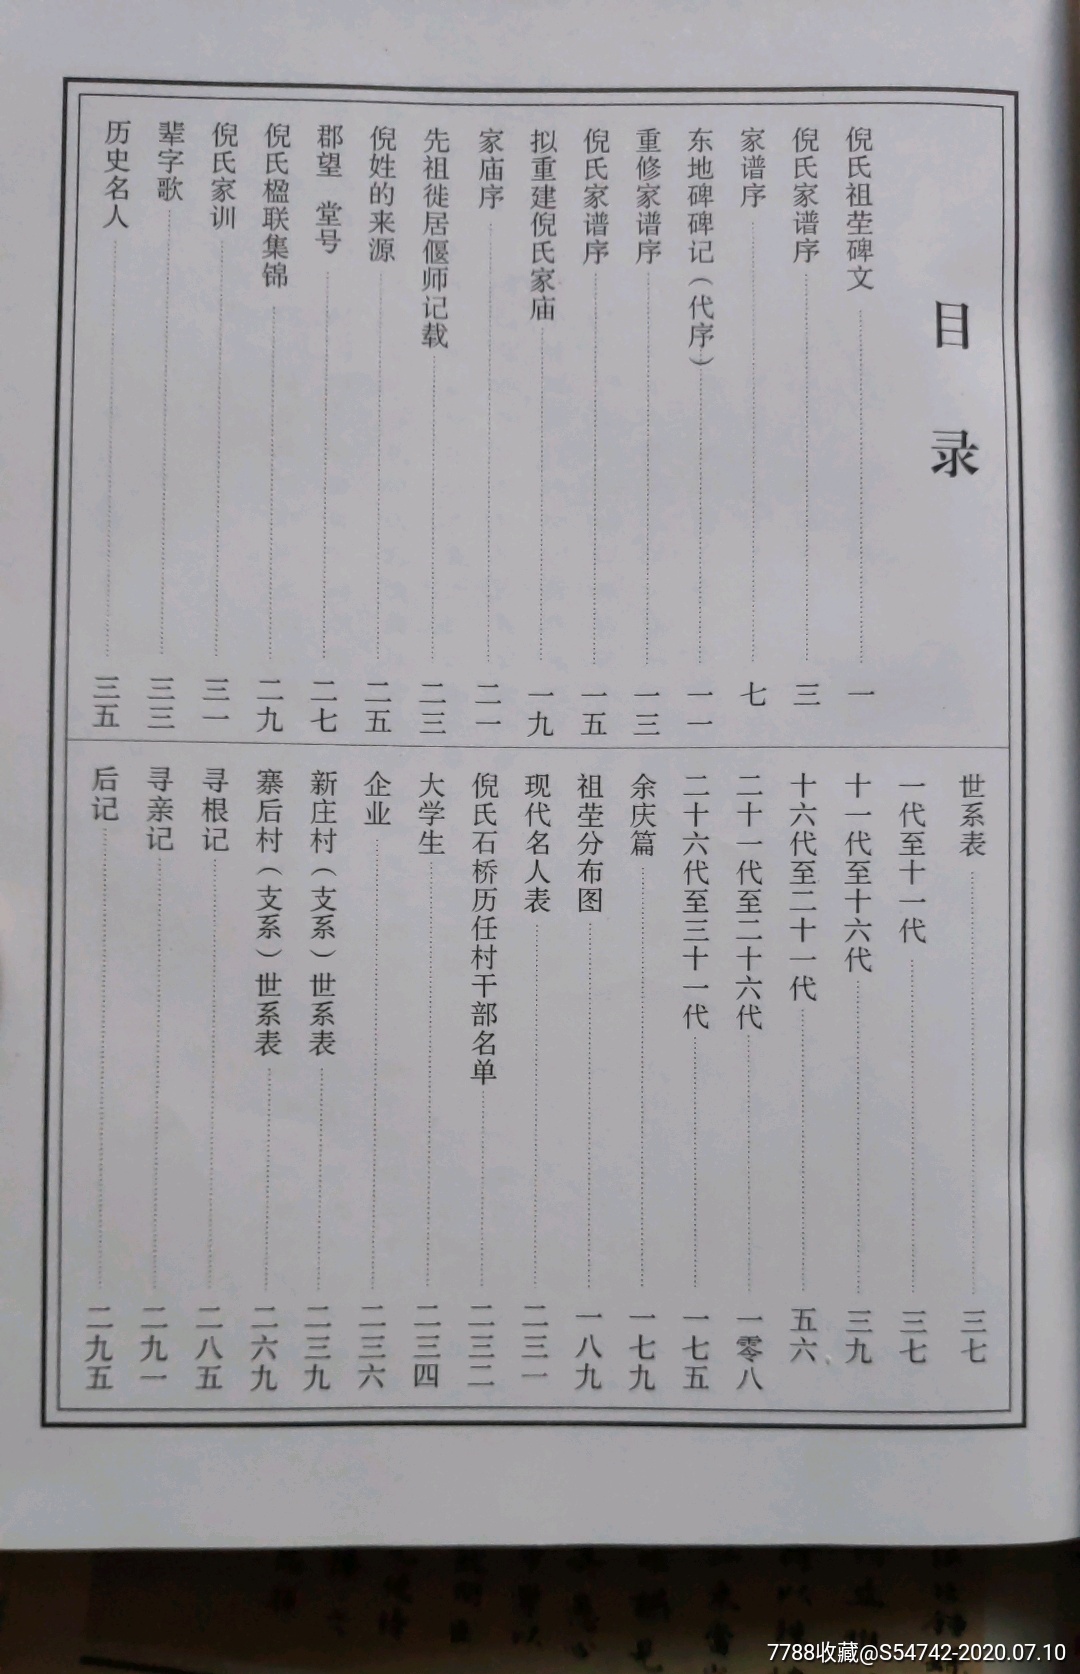 目录
倪氏祖茔碑文 一
倪氏家谱序 三
家谱序 七
东地碑碑记（代序） 一一
重修家谱序 一三
倪氏家谱序 一五
拟重建倪氏家庙 一九
家庙序 二一
先祖徙居偃师记载 二三
倪姓的来源 二五
郡望 堂号 二七
倪氏楹联集锦 二九
倪氏家训 三一
辈字歌 三三
历史名人 三五
世系表 三七
一代至十一代 三七
十一代至十六代 三九
十六代至二十一代 五六
二十一代至二十六代 一零八
二十六代至三十一代 一七五
余庆篇 一七九
祖茔分布图 一八九
现代名人表 二三一
倪氏石桥历任村干部名单 二三二
大学生 二三四
企业 二三六
新庄村（支系）世系表 二三九
寨后村（支系）世系表 二六九
寻根记 二八五
寻亲记 二九一
后记 二九五
7788收藏@S54742-2020.07.10